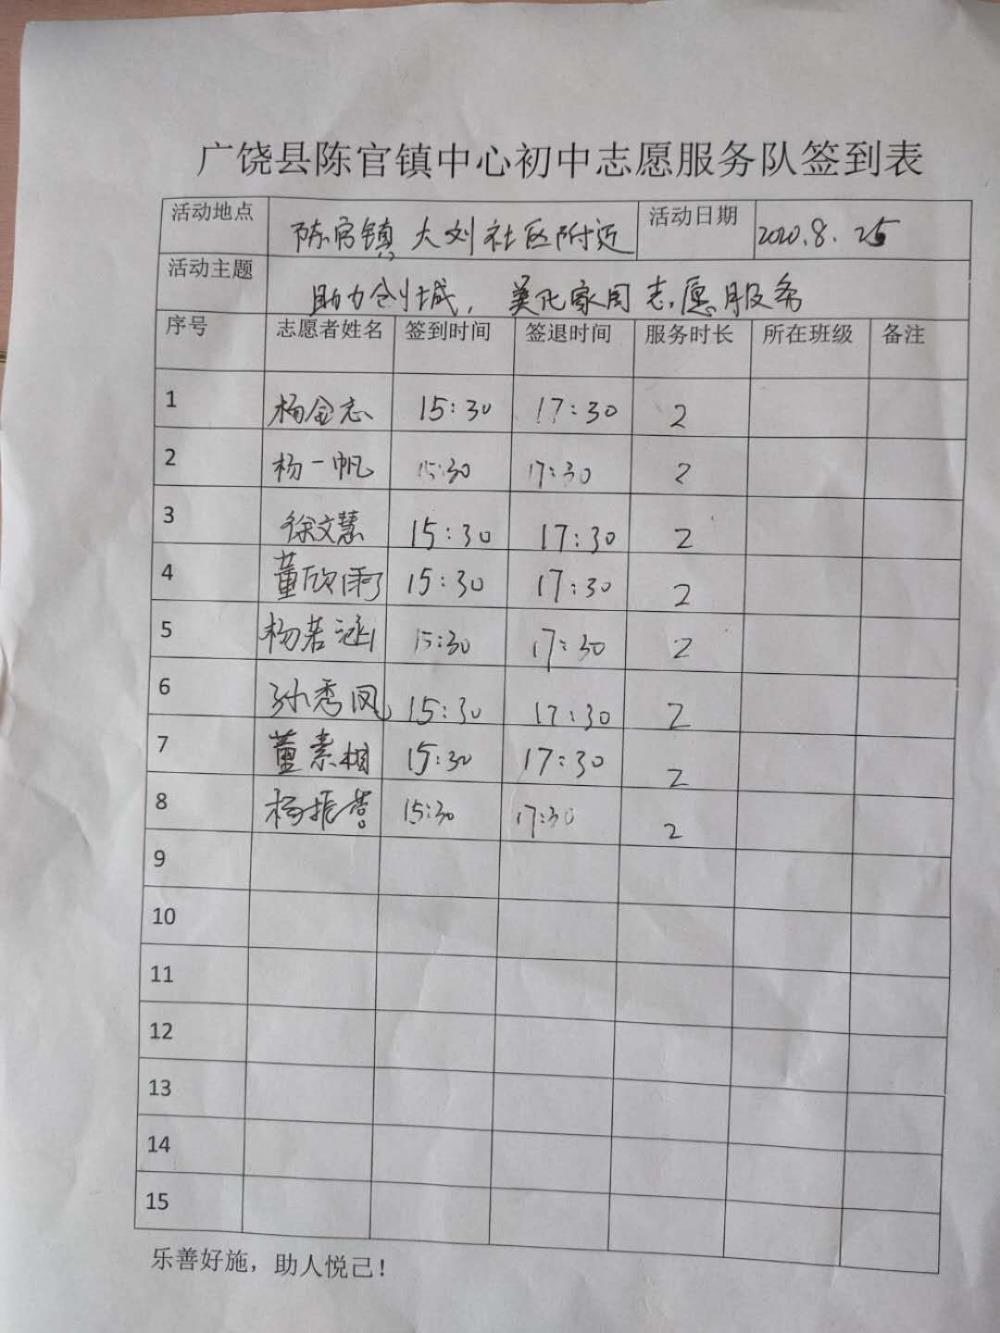 广饶县陈官镇中心初中志愿服务队签到表
活动地点 陈官镇大刘社区附近 活动日期 2020.8.25
活动主题 助力创城，美化家园志愿服务
序号 志愿者姓名 签到时间 签退时间 服务时长 所在班级 备注
1 杨金志 15:30 17:30 2
2 杨一帆 15:30 17:30 2
3 徐文慧 15:30 17:30 2
4 董欣雨 15:30 17:30 2
5 杨若涵 15:30 17:30 2
6 孙秀凤 15:30 17:30 2
7 董素相 15:30 17:30 2
8 杨振营 15:30 17:30 2
9
10
11
12
13
14
15
乐善好施，助人悦己！